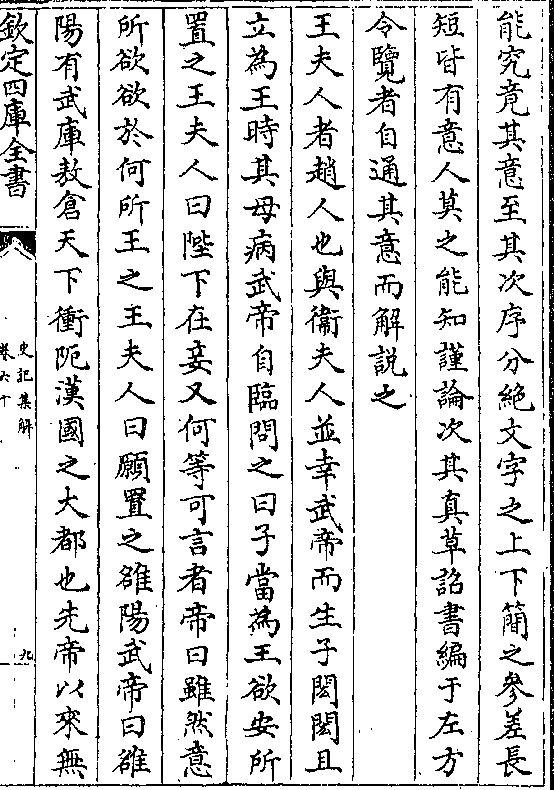 能究竟其意至其次序分絶文字之上下簡之參差長
短皆有意人莫之能知謹論次其真草詔書編于左方
令覽者自通其意而解說之
王夫人者趙人也與衞夫人並幸武帝而生子閎閎且
立為王時其母病武帝自臨問之曰子當為王欲安所
置之王夫人曰陛下在妾又何等可言者帝曰雖然意
所欲欲於何所王之王夫人曰願置之雒陽武帝曰雒
陽有武庫敖倉天下衝阨漢國之大都也先帝以來無
欽定四庫全書
史記集解
卷六十
九